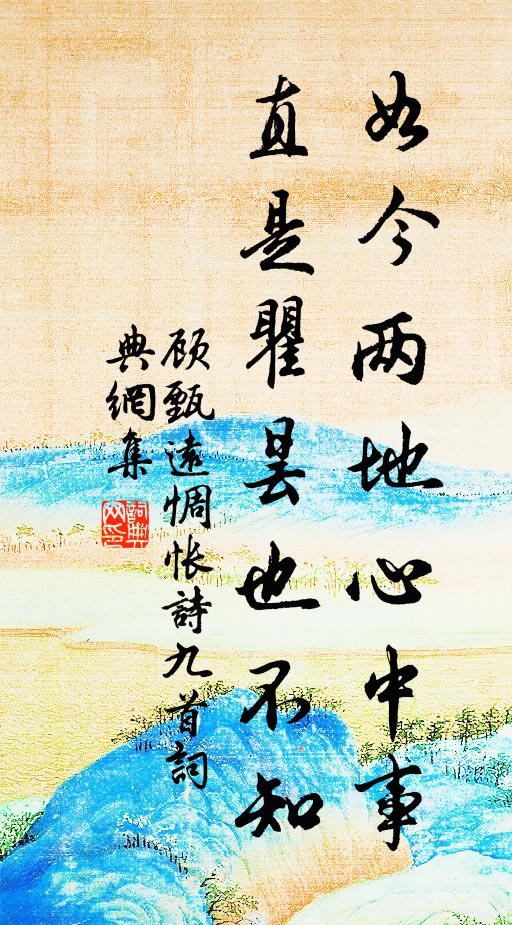 如今两地心中事
直是瞿昙也不知
顾甄遠惆怅詩九首詞
典網集
詞典
网印